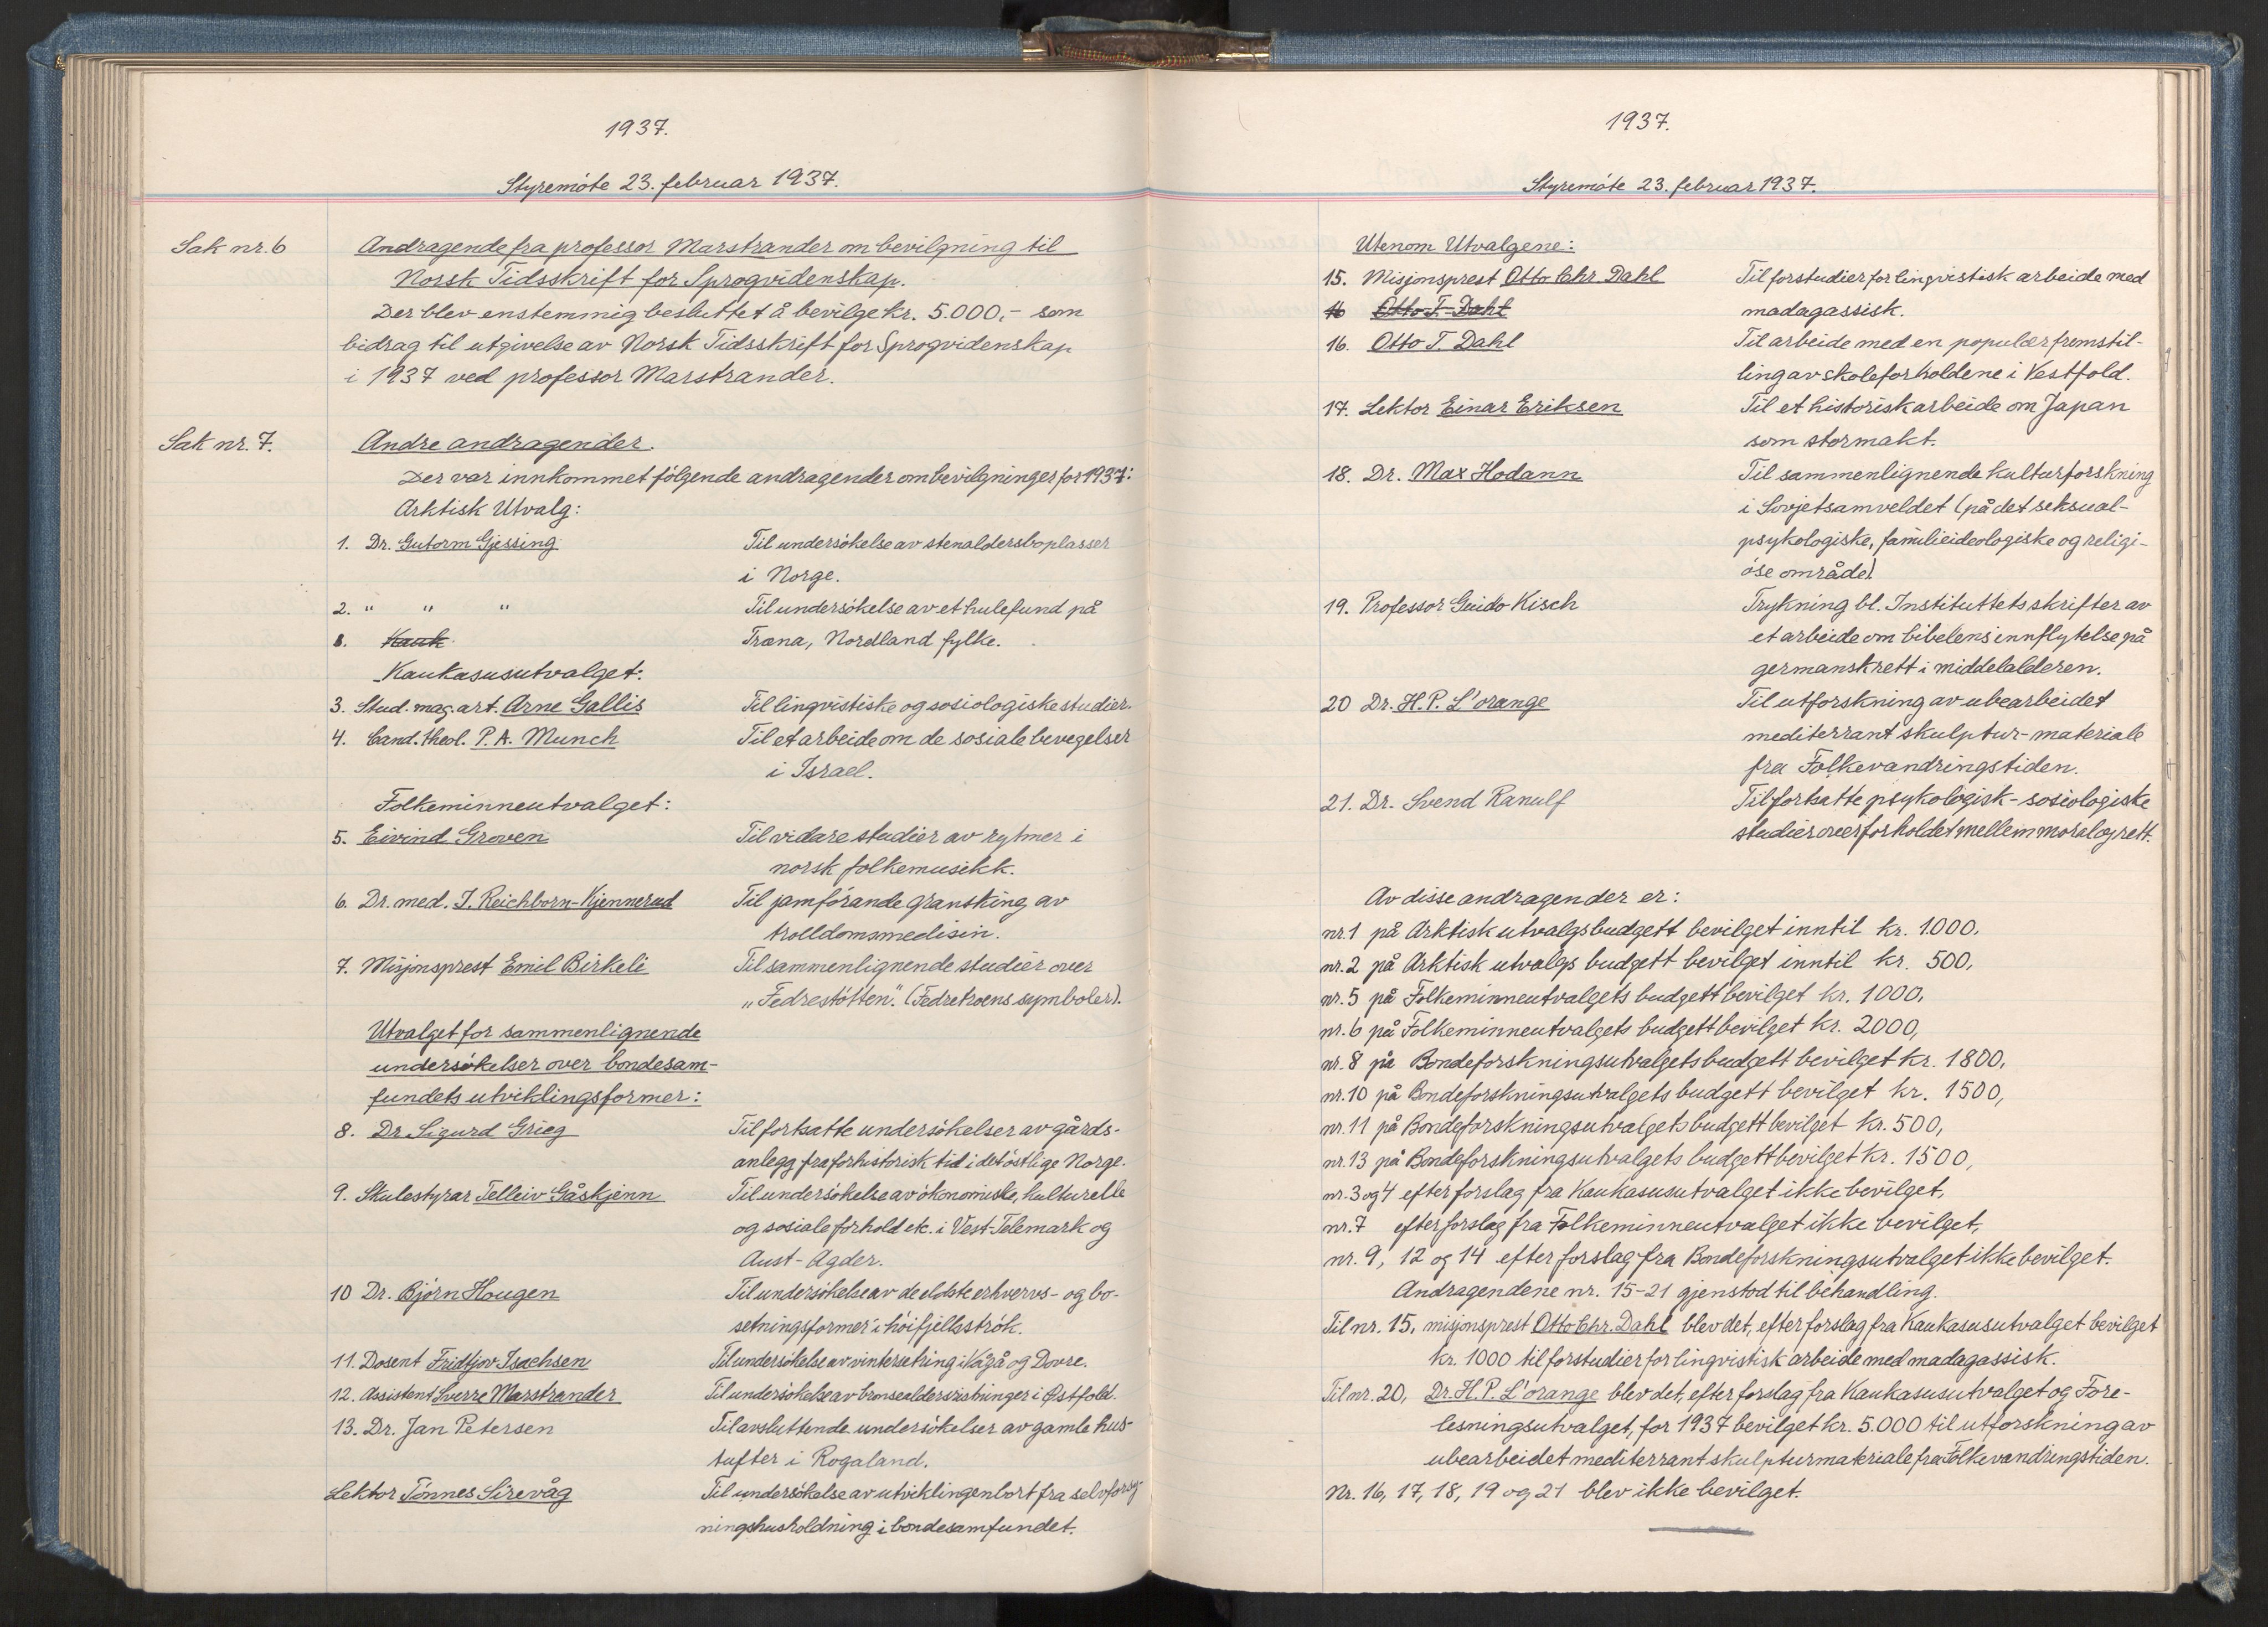 1937.
Styremöte 23. februar 1937.
Sak nr. 6 Andragende fra professor Marstrander om bevilgning til
Norsk Tidsskrift for Sprogvidenskap.
Der blev enstemmig besluttet å bevilge kr. 5.000,- som
bidrag til utgivelse av Norsk Tidsskrift for Sprogvidenskap
i 1937 ved professor Marstrander.
Sak nr. 7. Andre andragender.
Der var innkommet følgende andragender om bevilgninger for 1937:
Arktisk Utvalg:
1. Dr. Gutorm Gjessing Til undersökelse av stenaldersboplasser
i Norge.
2. " " " Til undersökelse av et hulefund på
3. Kauk Træna, Nordland fylke.
Kaukasusutvalget:
3. Stud. mag. art. Arne Gallis Til lingvistiske og sosiologiske studier.
4. Cand. theol. P. A. Munch Til et arbeide om de sosiale bevegelser
i Israel.
Folkeminneutvalget:
5. Eivind Groven Til vidare studier av rytmer i
norsk folkemusikk.
6. Dr. med. I. Reichborn-Kjennerud Til jamförande gransking av
trolldomsmedisin.
7. Misjonsprest Emil Birkeli Til sammenlignende studier over
„Fedrestötten". (Fedretroens symboler).
Utvalget for sammenlignende
undersökelser over bondesam-
fundets utviklingsformer:
8. Dr Sigurd Grieg Til fortsatte undersökelser av gårds-
anlegg fra forhistorisk tid i det östlige Norge.
9. Skulestyrar Telleiv Gåskjenn Til undersökelse av ökonomiske, kulturelle
og sosiale forhold etc. i Vest-Telemark og
Aust-Agder.
10 Dr. Björn Hougen Til undersökelse av de eldste erhvervs- og bo-
setningsformer i höifjellsströk.
11. Dosent Fridtjov Isachsen Til undersökelse av vintersetring i Vågå og Dovre.
12. Assistent Sverre Marstrander Til undersökelse av bronsealdersristninger i Østfold.
13. Dr. Jan Petersen Til avsluttende undersökelser av gamle hus-
tufter i Rogaland.
Lektor Tönnes Sirevåg Til undersökelse av utviklingen bort fra selvforsy-
ningshusholdning i bondesamfundet.
1937.
Styremöte 23. februar 1937.
Utenom Utvalgene:
15. Misjonsprest Otto Chr. Dahl Til forstudier for lingvistisk arbeide med
16 Otto T. Dahl madagassisk.
16. Otto T. Dahl Til arbeide med en populær fremstil-
ling av skoleforholdene i Vestfold.
17. Lektor Einar Eriksen Til et historisk arbeide om Japan
som stormakt.
18. Dr. Max Hodann Til sammenlignende kulturforskning
i Sovjetsamveldet (på det seksual-
psykologiske, familieideologiske og religi-
öse område)
19. Professor Guido Kisch Trykning bl. Instituttets skrifter av
et arbeide om bibelens innflytelse på
germansk rett i middelalderen.
20 Dr. H. P. L'orange Til utforskning av ubearbeidet
mediterrant skulptur-materiale
fra Folkevandringstiden.
21. Dr. Svend Ranulf Til fortsatte psykologisk-sosiologiske
studier over forholdet mellem moral og rett.
Av disse andragender er:
nr. 1 på Arktisk utvalgs budgett bevilget inntil kr. 1.000,
nr. 2 på Arktisk utvalgs budgett bevilget inntil kr. 500,
nr. 5 på Folkeminneutvalgets budgett bevilget kr. 1000,
nr. 6 på Folkeminneutvalgets budgett bevilget kr. 2000,
nr. 8 på Bondeforskningsutvalgets budgett bevilget kr. 1800,
nr. 10 på Bondeforskningsutvalgets budgett bevilget kr. 1500,
nr. 11 på Bondeforskningsutvalgets budgett bevilget kr. 500,
nr. 13 på Bondeforskningsutvalgets budgett bevilget kr. 1500,
nr. 3 og 4 efter forslag fra Kaukasusutvalget ikke bevilget,
nr. 7 efter forslag fra Folkeminneutvalget ikke bevilget,
nr. 9, 12 og 14 efter forslag fra Bondeforskningsutvalget ikke bevilget.
Andragendene nr. 15-21 gjenstod til behandling.
Til nr. 15, misjonsprest Otto Chr. Dahl blev det, efter forslag fra Kaukasusutvalget bevilget
kr. 1000 til forstudier for lingvistisk arbeide med madagassisk.
Til nr. 20, Dr. H. P. L'orange blev det, efter forslag fra Kaukasusutvalget og Fore-
lesningsutvalget, for 1937 bevilget kr. 5.000 til utforskning av
ubearbeidet mediterrant skulpturmateriale fra Folkevandringstiden.
Nr. 16, 17, 18, 19 og 21 blev ikke bevilget.